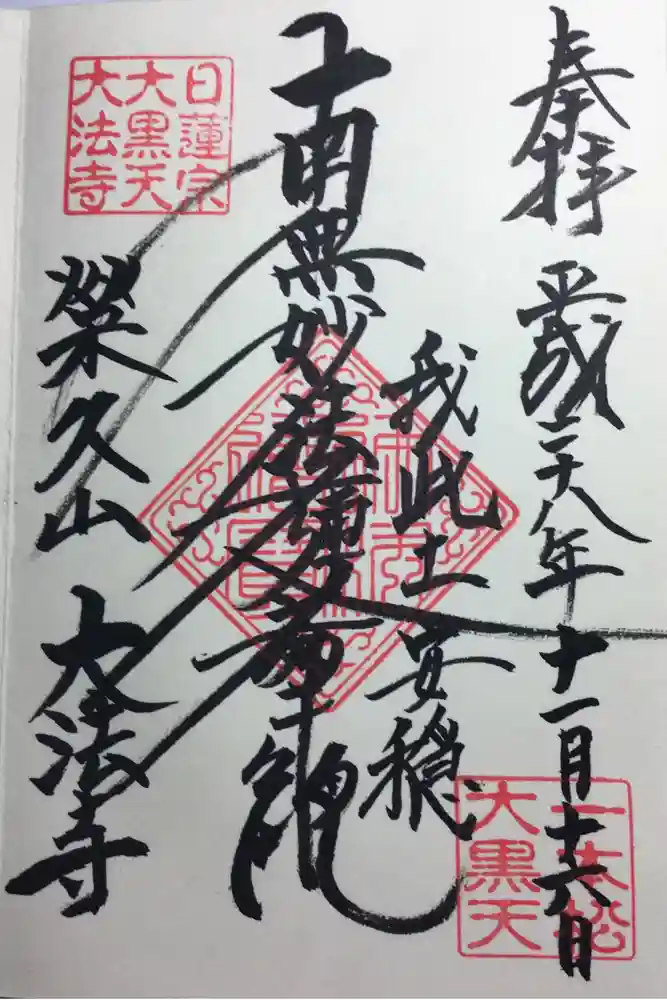 奉拝
平成二十八年十一月十六日
我此土安穏
南無妙法蓮華経
榮久山 大法寺
日蓮宗
大黒天
大法寺
一本松
大黒天